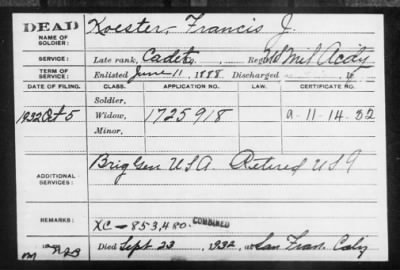 DEAD
NAME OF SOLDIER: Koester, Francis J.
SERVICE: Late rank, Cadet, Reg't US Mil Acdy
TERM OF SERVICE: Enlisted June 11, 1888. Discharged
DATE OF FILING. CLASS. APPLICATION NO. LAW. CERTIFICATE NO.
Soldier,
1932 Oct 5 Widow, 1725918 a-11-14-32
Minor,
ADDITIONAL SERVICES: Brig Gen USA Retired USA
REMARKS: XC-853,480. COMBINED
Died Sept 23, 1932, at San Fran. Calif